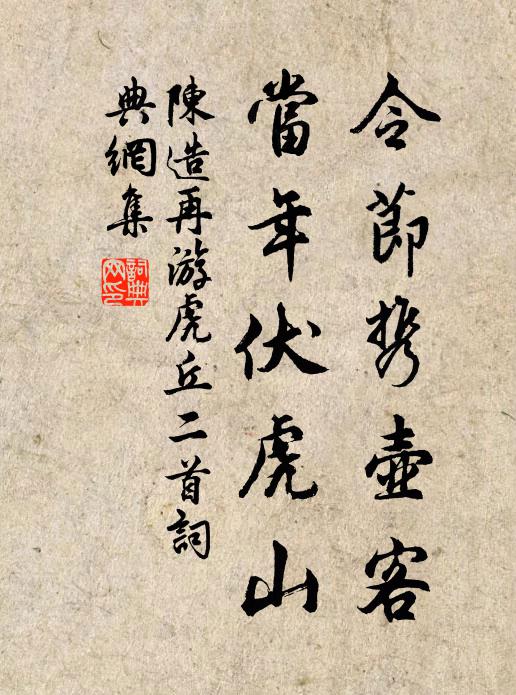 令節携壺客
當年伏虎山
陳造再游虎丘二首詞
典網集
詞典
网印